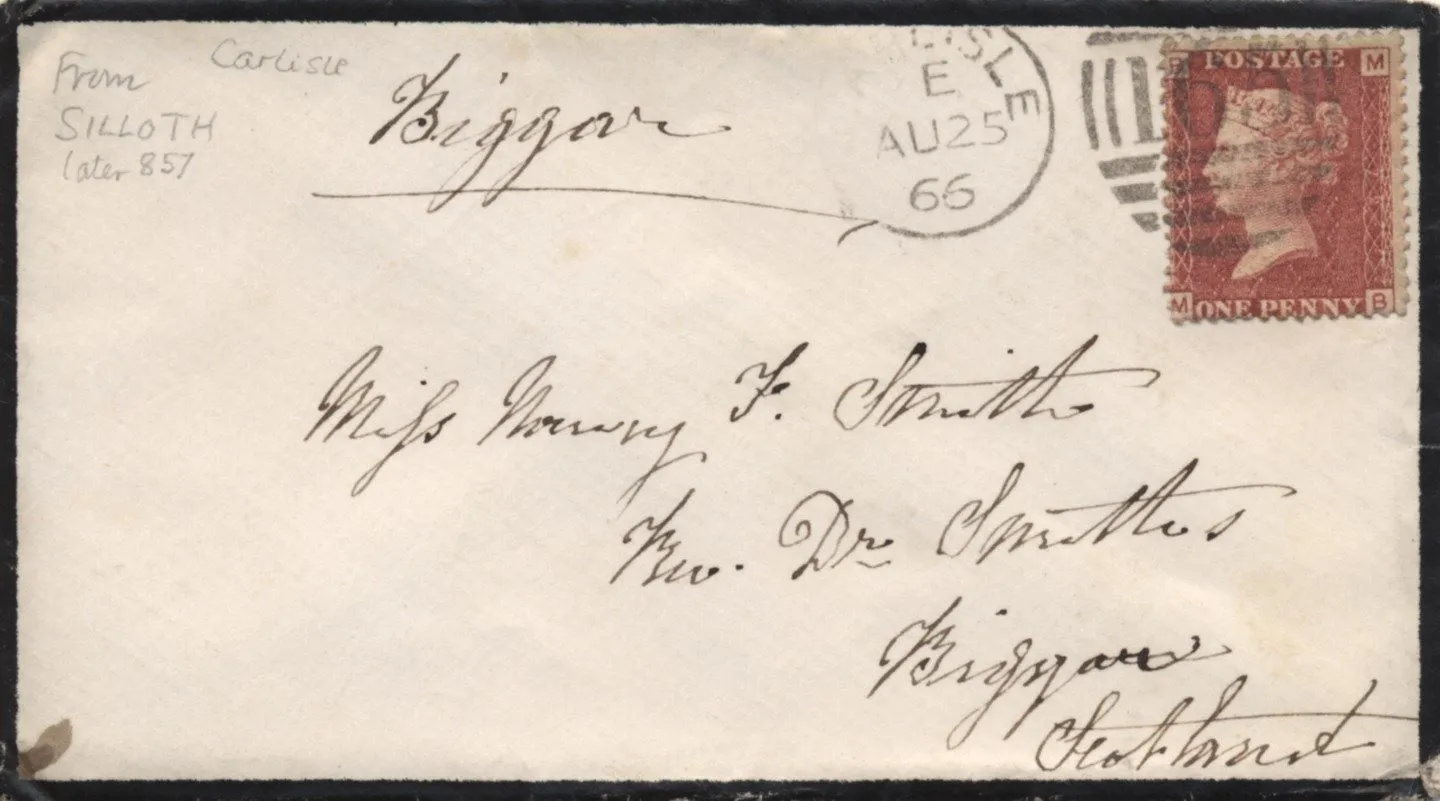 From
Carlisle
SILLOTH
later 857
Biggar
LISLE
E
AU 25
66
POSTAGE M
M ONE PENNY B
Miss F. Smith
Rev. Dr Smith's
Biggar
Scotland